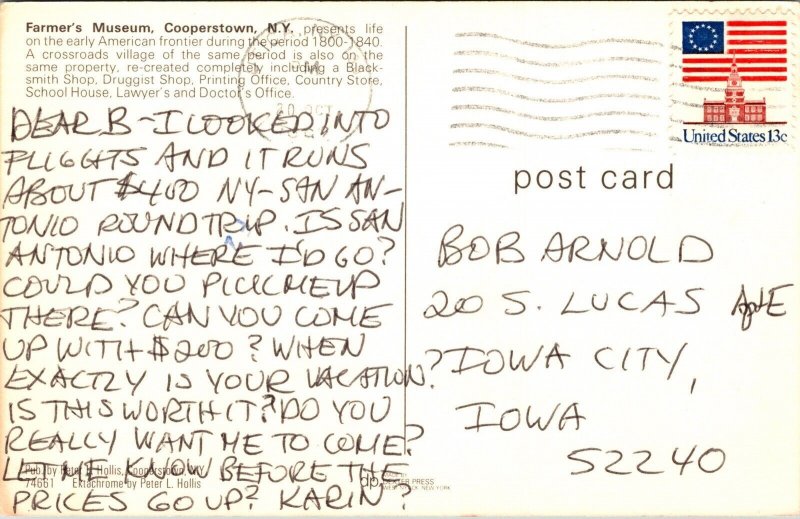 Farmer's Museum, Cooperstown, N.Y. presents life
on the early American frontier during the period 1800-1840.
A crossroads village of the same period is also on the
same property, re-created completely including a Black-
smith Shop, Druggist Shop, Printing Office, Country Store,
School House, Lawyer's and Doctor's Office.
DEAR B - I LOOKED INTO
FLIGHTS AND IT RUNS
ABOUT $400 NY - SAN AN-
TONIO ROUNDTRIP. IS SAN
ANTONIO WHERE I'D GO?
COULD YOU PICK ME UP
THERE? CAN YOU COME
UP WITH $200? WHEN
EXACTLY IS YOUR VACATION?
IS THIS WORTH IT? DO YOU
REALLY WANT ME TO COME?
LET ME KNOW BEFORE THE
PRICES GO UP? KARIN?
Pub. by Peter L. Hollis, Cooperstown, NY
74661 Ektachrome by Peter L. Hollis
dp
DEXTER PRESS
WEST NYACK, NEW YORK
20 OCT
United States 13c
post card
BOB ARNOLD
20 S. LUCAS Apt E
IOWA CITY,
IOWA
52240